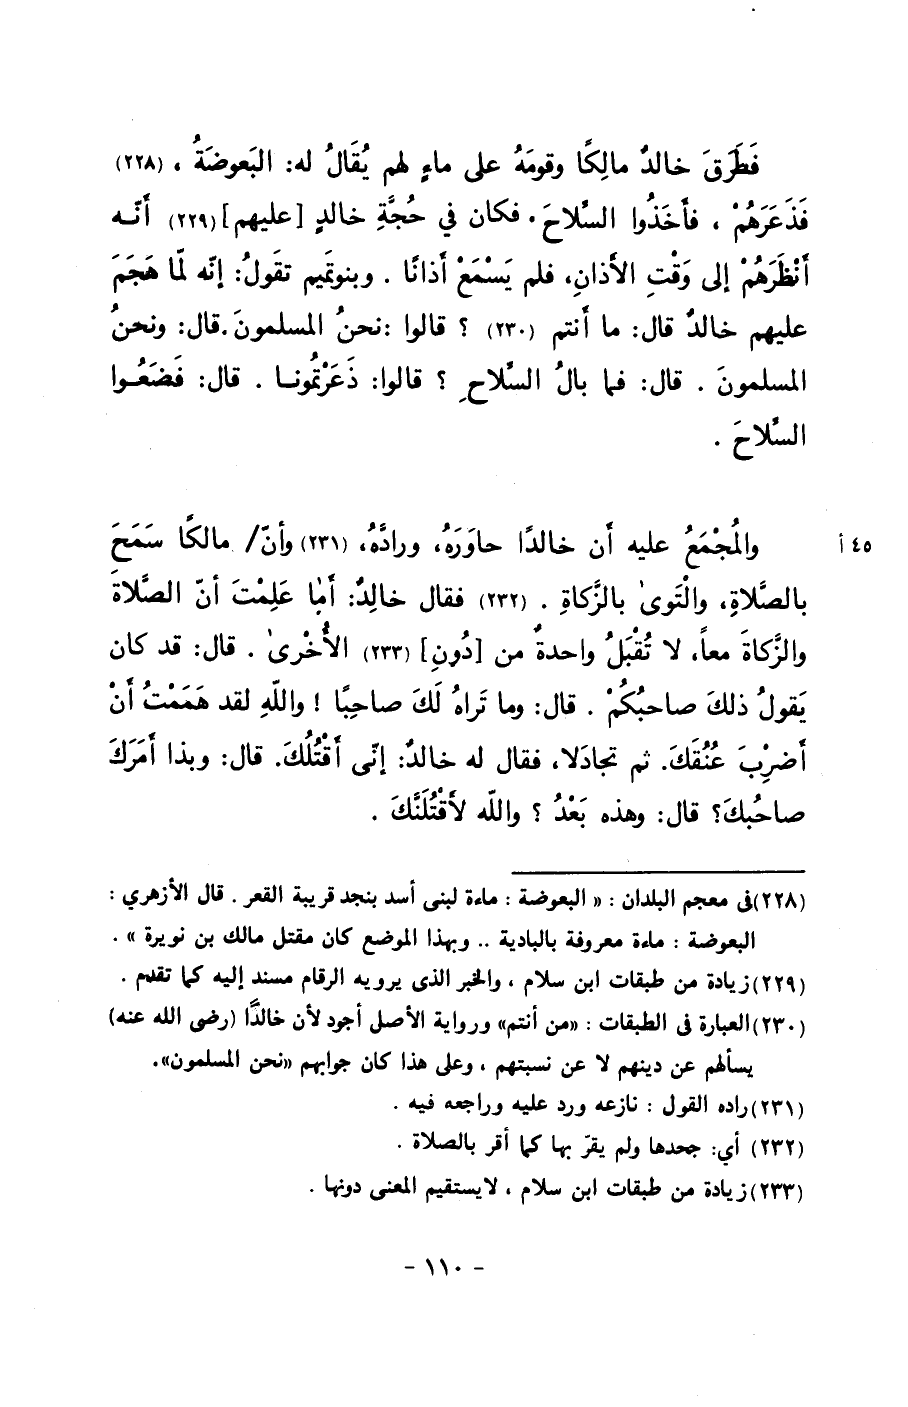 فَطَرَقَ خالدٌ مالِكًا وقومَهُ على ماءٍ لهم يُقَالُ له: البَعوضَةُ ، (٢٢٨)
فَذَعَرَهُمْ ، فأخَذُوا السِّلاحَ. فكان في حُجَّةِ خالدٍ [عليهم] (٢٢٩) أَنّـه
أَنْظَرَهُمْ إلى وَقْتِ الأذانِ، فلم يَسْمَعْ أذانًا . وبنوتَميم تقَولُ: إنّه لمّا هَجَمَ
عليهم خالدٌ قال: ما أَنتم (٢٣٠) ؟ قالوا :نحنُ المسلمونَ.قال: ونحنُ
المسلمونَ . قال: فما بالُ السِّلاحِ ؟ قالوا: ذَعَرْتُمونـا . قال: فَضَعُـوا
السِّلاحَ .
والمُجْمَعُ عليه أن خالدًا حاوَرَهُ، ورادَّهُ، (٢٣١) وأنّ/ مالكًا سَمَحَ
٤٥ أ
بالصَّلاةِ، والْتَوىٰ بالزَّكاةِ . (٢٣٢) فقال خالِدٌ: أمَا عَلِمْتَ أنّ الصَّلاةَ
والزَّكاةَ معاً، لا تُقْبَلُ واحدةٌ من [دُونِ] (٢٣٣) الأُخْرىٰ . قال: قد كان
يَقولُ ذلكَ صاحبُكُمْ . قال: وما تَراهُ لَكَ صاحِبًا ! واللّهِ لقد هَمَمْتُ أَنْ
أَضرِبَ عُنُقَكَ. ثم تجادَلا، فقال له خالدٌ: إنّى أَقْتُلُكَ. قال: وبذا أَمَرَكَ
صاحُبكَ؟ قال: وهذه بَعْدُ ؟ واللّه لأقْتُلَنَّكَ .
(٢٢٨)فى معجم البلدان : « البعوضة : ماءة لبنى أسد بنجد قريبة القعر . قال الأزهري :
البعوضة : ماءة معروفة بالبادية .. وبهذا الموضع كان مقتل مالك بن نويرة » .
(٢٢٩)زيادة من طبقات ابن سلام ، والخبر الذى يرويه الرقام مسند إليه كما تقدم .
(٢٣٠)العبارة فى الطبقات : «من أنتم» ورواية الأصل أجود لأن خالدًا (رضى الله عنه)
يسألهم عن دينهم لا عن نسبتهم ، وعلى هذا كان جوابهم «نحن المسلمون».
(٢٣١)راده القول : نازعه ورد عليه وراجعه فيه .
(٢٣٢) أي: جحدها ولم يقرّ بها كما أقر بالصلاة .
(٢٣٣)زيادة من طبقات ابن سلام ، لايستقيم المعنى دونها .
- ١١٠ -